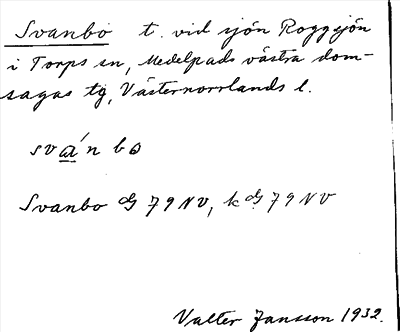 Svanbo t. vid sjön Roggsjön
i Torps sn, Medelpads västra dom-
sagas tg, Västernorrlands l.
svánbo
Svanbo dG 79 NV, k dG 79 NV
Valter Jansson 1932.